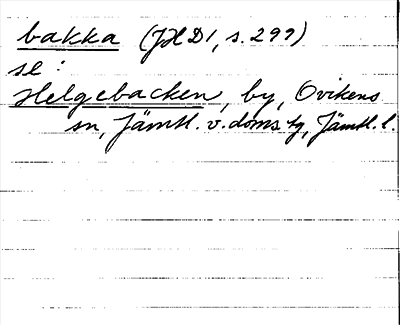 bakka (JHD 1, s. 299)
se:
Helgebacken, by, Ovikens
sn, Jämtl. v. doms. tg, Jämtl. l.